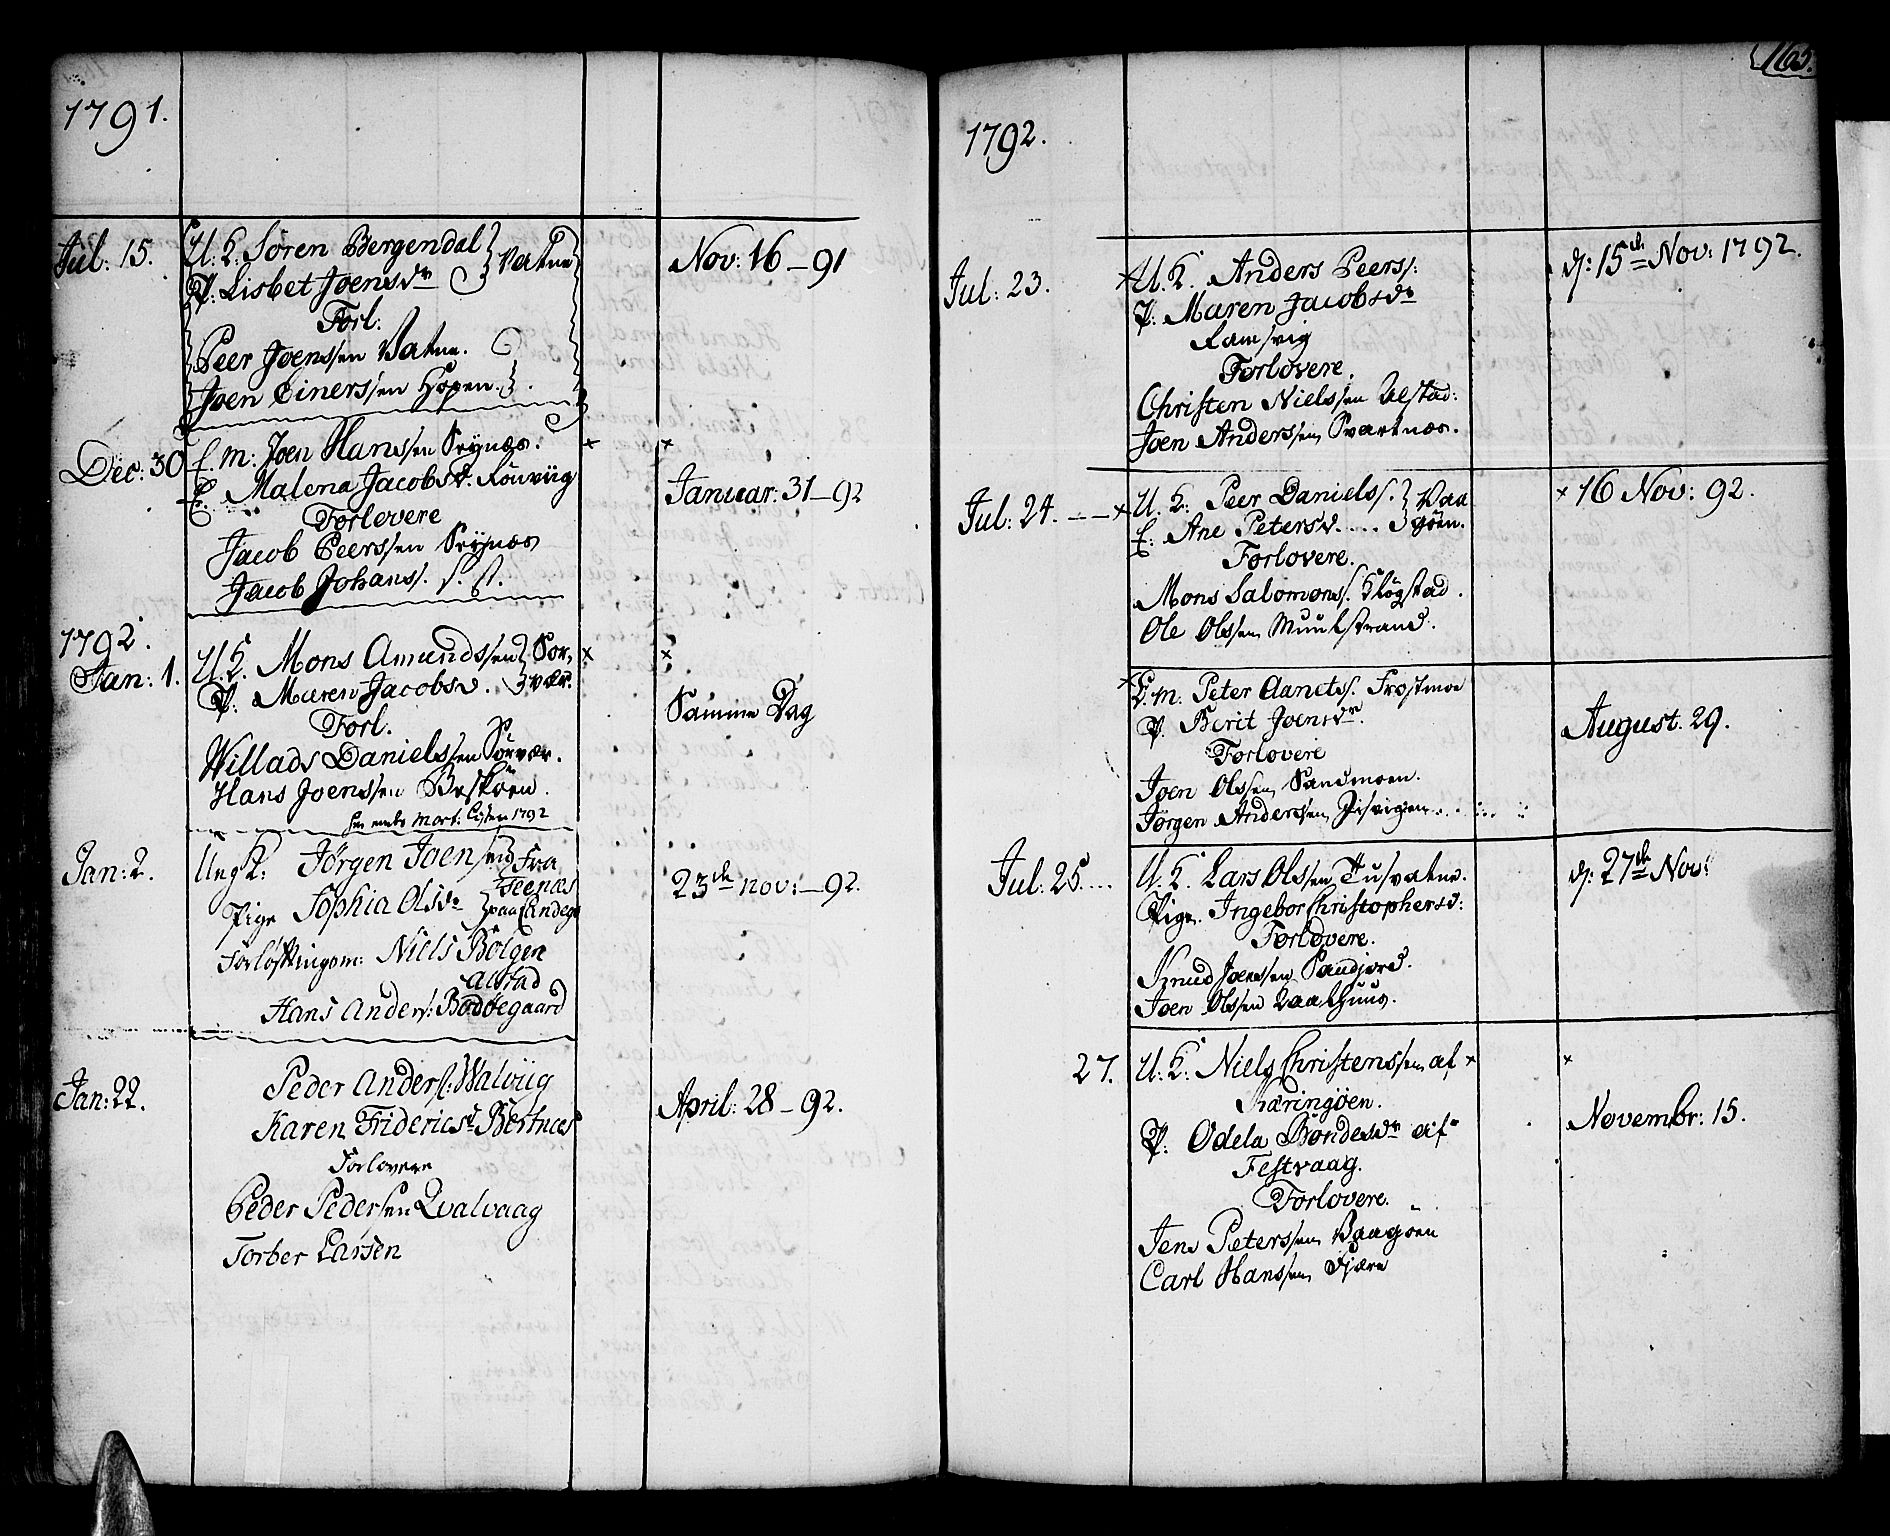 1791.
Jul: 15.
U. K. Søren Bergendal
P. Lisbet Joensdr
Vatne
Forl:
Peer Joenssen Vatne.
Joen Einerssen Hopen.
Nov: 16 – 91
Dec: 30
E. m: Joen Hanssen
E. Malena Jacobsd.
Forlovere
Jacob Peerssen
Jacob Johans.
Januar: 31 – 92
1792.
Jan: 1.
U. K. Mons Amundssen
P. Maren Jacobsd.
Sor,
vær.
Forl.
Willads Danielssen Sorvær.
Hans Joenssen
Mort: 1792
Samme Dag
Jan: 2.
Ung K: Jørgen Joensen
fra
Pige Sophia Olsdr
paa
Niels Bolgen
Alstad
Hans Anders: Bodøegaard
23de nov: – 92.
Jan: 22.
Peder Anders: Walviig
Karen Fridericsd Bertnces
Forlovere
Peder Pedersen Qvalvaag
Torber Larsen
April: 28 – 92.
165.
1792.
Jul: 23.
U. K. Anders Peers:
P. Maren Jacobsdr
Ramsvig
Forlovere.
Christen Nielssen Alstad:
Joen Anderssen Svartnæs.
d: 15de Nov: 1792.
Jul: 24.
U. K: Peer Daniels.
Vaa
E: Ane Petersd.
gøen.
Forlovere.
Mons Salomons. Kløgstad.
Ole Olssen Muulstrand.
16 Nov: 92.
E. m. Peter Frostmoe
P. Berit Joensdr.
Forlovere
Joen Olssen Sandmoen.
Jørgen Anderssen
August. 29.
Jul: 25.
U. K. Lars Olssen Tusvatne.
Pige. Ingebor Christophersd:
Forlovere.
Knud Joenssen Sandjord.
Joen Olssen
d: 27de Nov:
27.
U. K. Niels Christenssen af
Kæringøen.
P. Odela Bondesdr af
Festvaag.
Forlovere.
Jens Peterssen Vaagøen
Carl Hanssen Fjære
Novembr: 15.